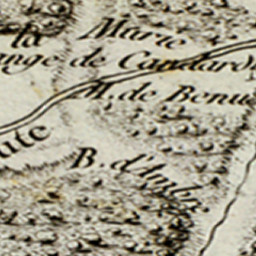 la Marie
ange de Candaro
M. de Benu
ute
B. d'Ambr